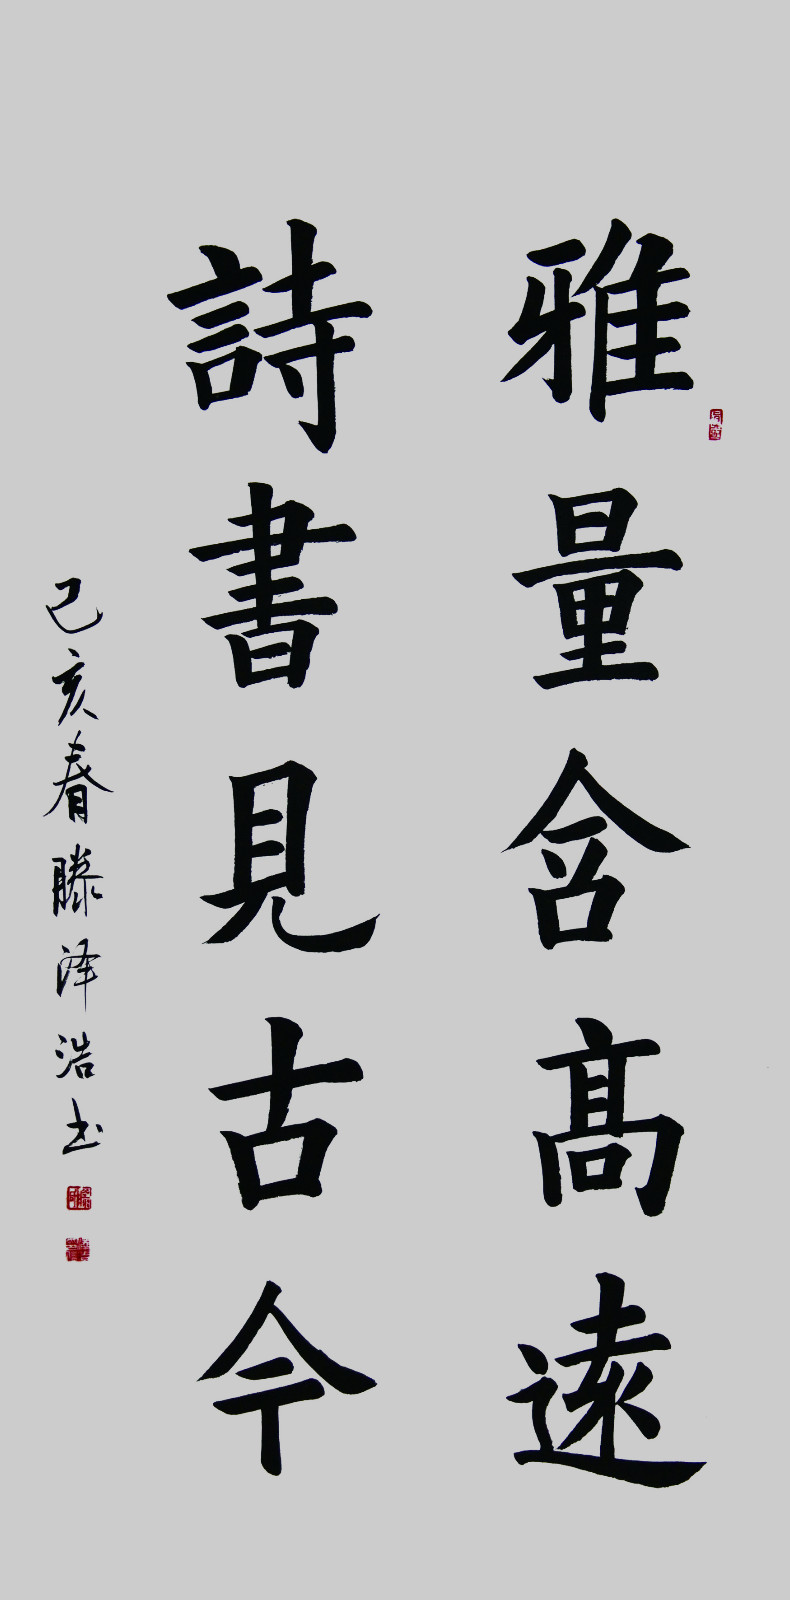 雅量含高遠
詩書見古今
己亥春滕泽浩书